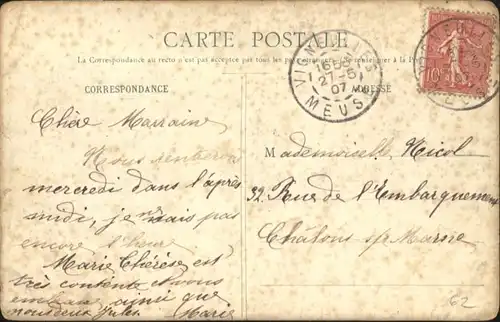 CARTE POSTALE
La Correspondance au recto n'est pas acceptée par tous les pays
CORRESPONDANCE
ADRESSE
VIGN
16
27-5
07
MEUSE
10
Chère Marraine
Nous rentrerons
mercredi dans l'après
midi, je ne sais pas
encore l'heure
Marie Thérèse est
très contente
ainsi que
nous deux Jules. Marie
Mademoiselle Nicol
32 Rue de l'Embarquement
Châlons s/r Marne
62